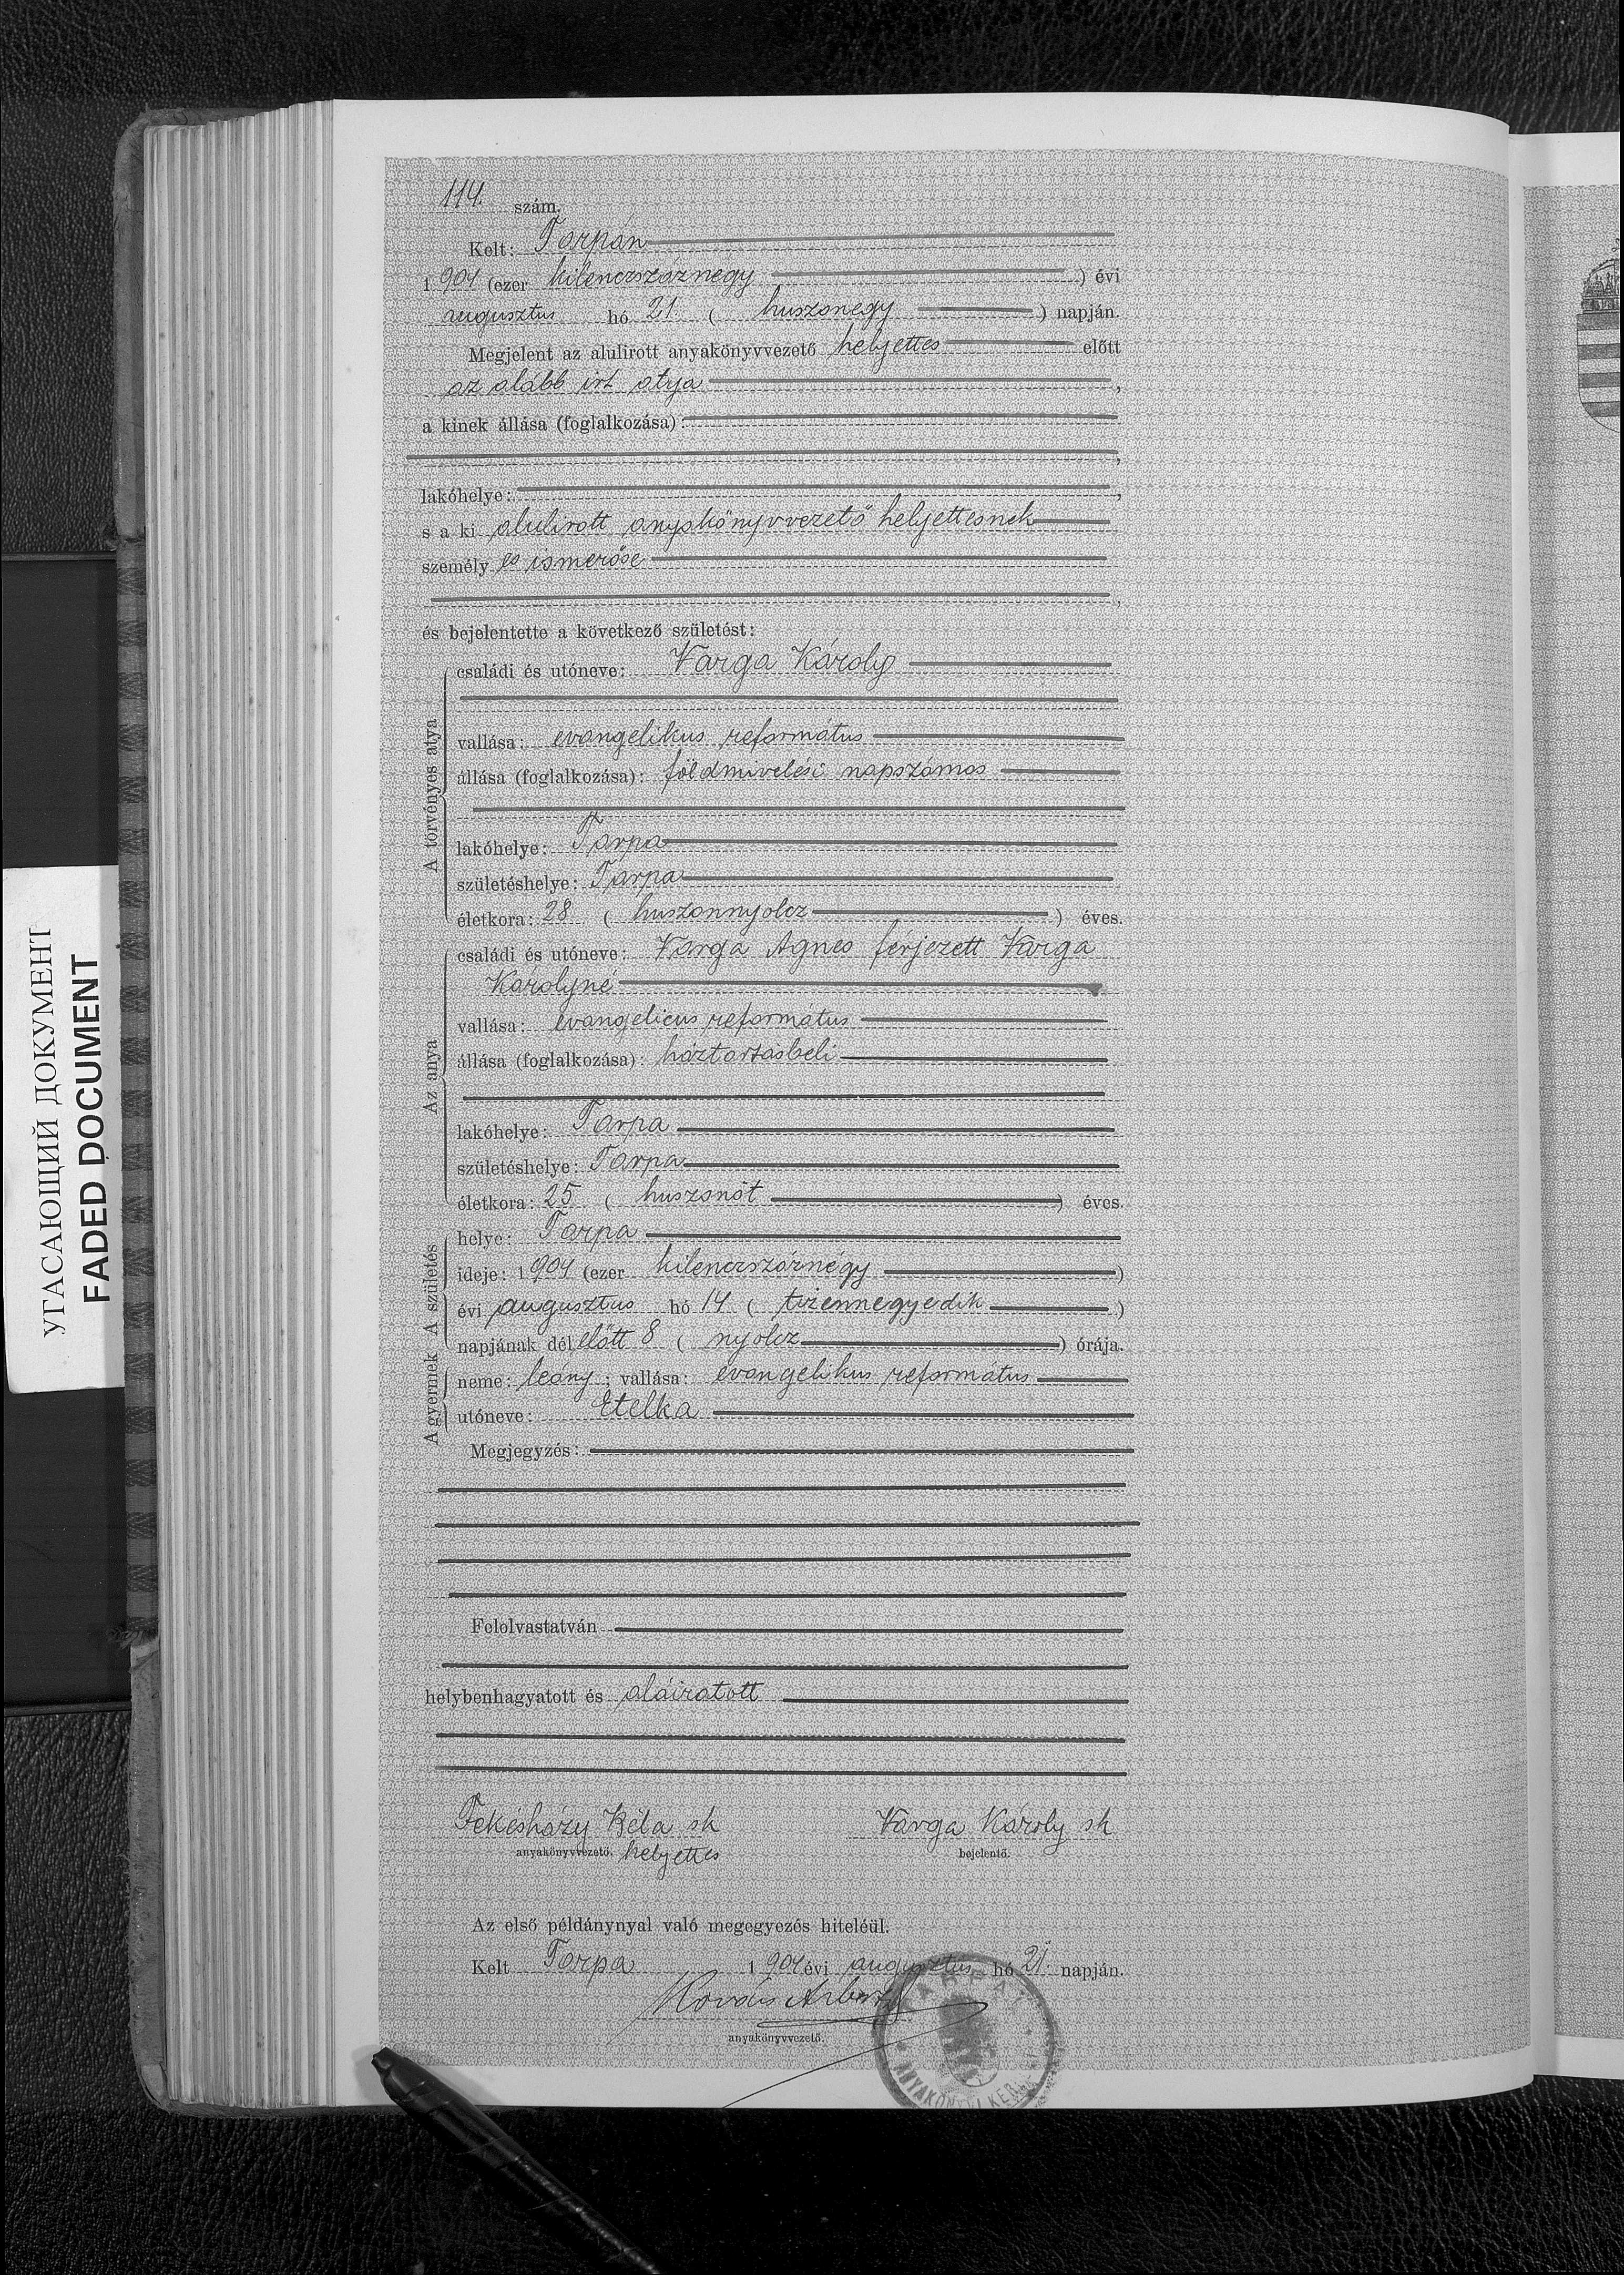 114. szám.
Kelt: Tarpán
1904 (ezer kilenczszáznégy) évi
augusztus hó 21. (huszonegy) napján.
Megjelent az alulirott anyakönyvvezető helyettes előtt
az alább irt atya,
a kinek állása (foglalkozása):
,
lakóhelye: ,
s a ki alulirott anyakönyvvezető helyettesnek
személyes ismerőse
,
és bejelentette a következő születést:
A törvényes atya
családi és utóneve: Varga Károly
vallása: evangelikus református
állása (foglalkozása): földmivelési napszámos
lakóhelye: Tarpa
születéshelye: Tarpa
életkora: 28 (huszonnyolcz) éves.
Az anya
családi és utóneve: Varga Ágnes férjezett Varga
Károlyné
vallása: evangelicus református
állása (foglalkozása): háztartásbeli
lakóhelye: Tarpa
születéshelye: Tarpa
életkora: 25 (huszonöt) éves.
A születés
helye: Tarpa
ideje: 1904 (ezer kilenczszáznégy)
évi augusztus hó 14 (tizennegyedik)
napjának délelőtt 8 (nyolcz) órája.
A gyermek
neme: leány; vallása: evangelikus református
utóneve: Etelka
Megjegyzés:
Felolvastatván
helybenhagyatott és aláiratott
Fekésházy Béla sk Varga Károly sk
anyakönyvvezető. helyettes bejelentő.
Az első példánynyal való megegyezés hiteléül.
Kelt Tarpa 1904 évi augusztus hó 21. napján.
Kovács
anyakönyvvezető.
TARPAI
ANYAKÖNYVI KER.
УГАСАЮЩИЙ ДОКУМЕНТ
FADED DOCUMENT